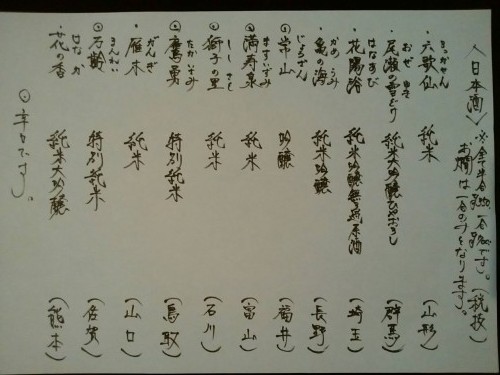 〈日本酒〉 ※全半合 一合 です。(税抜)
お燗は一合のみとなります。
ろっかせん
・六歌仙 純米 (山形)
おぜ ゆき
・尾瀬の雪どけ 純米大吟醸ひやおろし (群馬)
はなあび
・花陽浴 純米吟醸無濾過原酒 (埼玉)
かめ うみ
・亀の海 純米吟醸 (長野)
じょうざん
◎常山 吟醸 (福井)
ますいずみ
◎満寿泉 純米 (富山)
しし さと
◎獅子の里 純米 (石川)
たかいさみ
◎鷹勇 特別純米 (鳥取)
がんぎ
・雁木 純米 (山口)
まんれい
◎万齢 特別純米 (佐賀)
はな か
・花の香 純米大吟醸 (熊本)
◎辛口です。